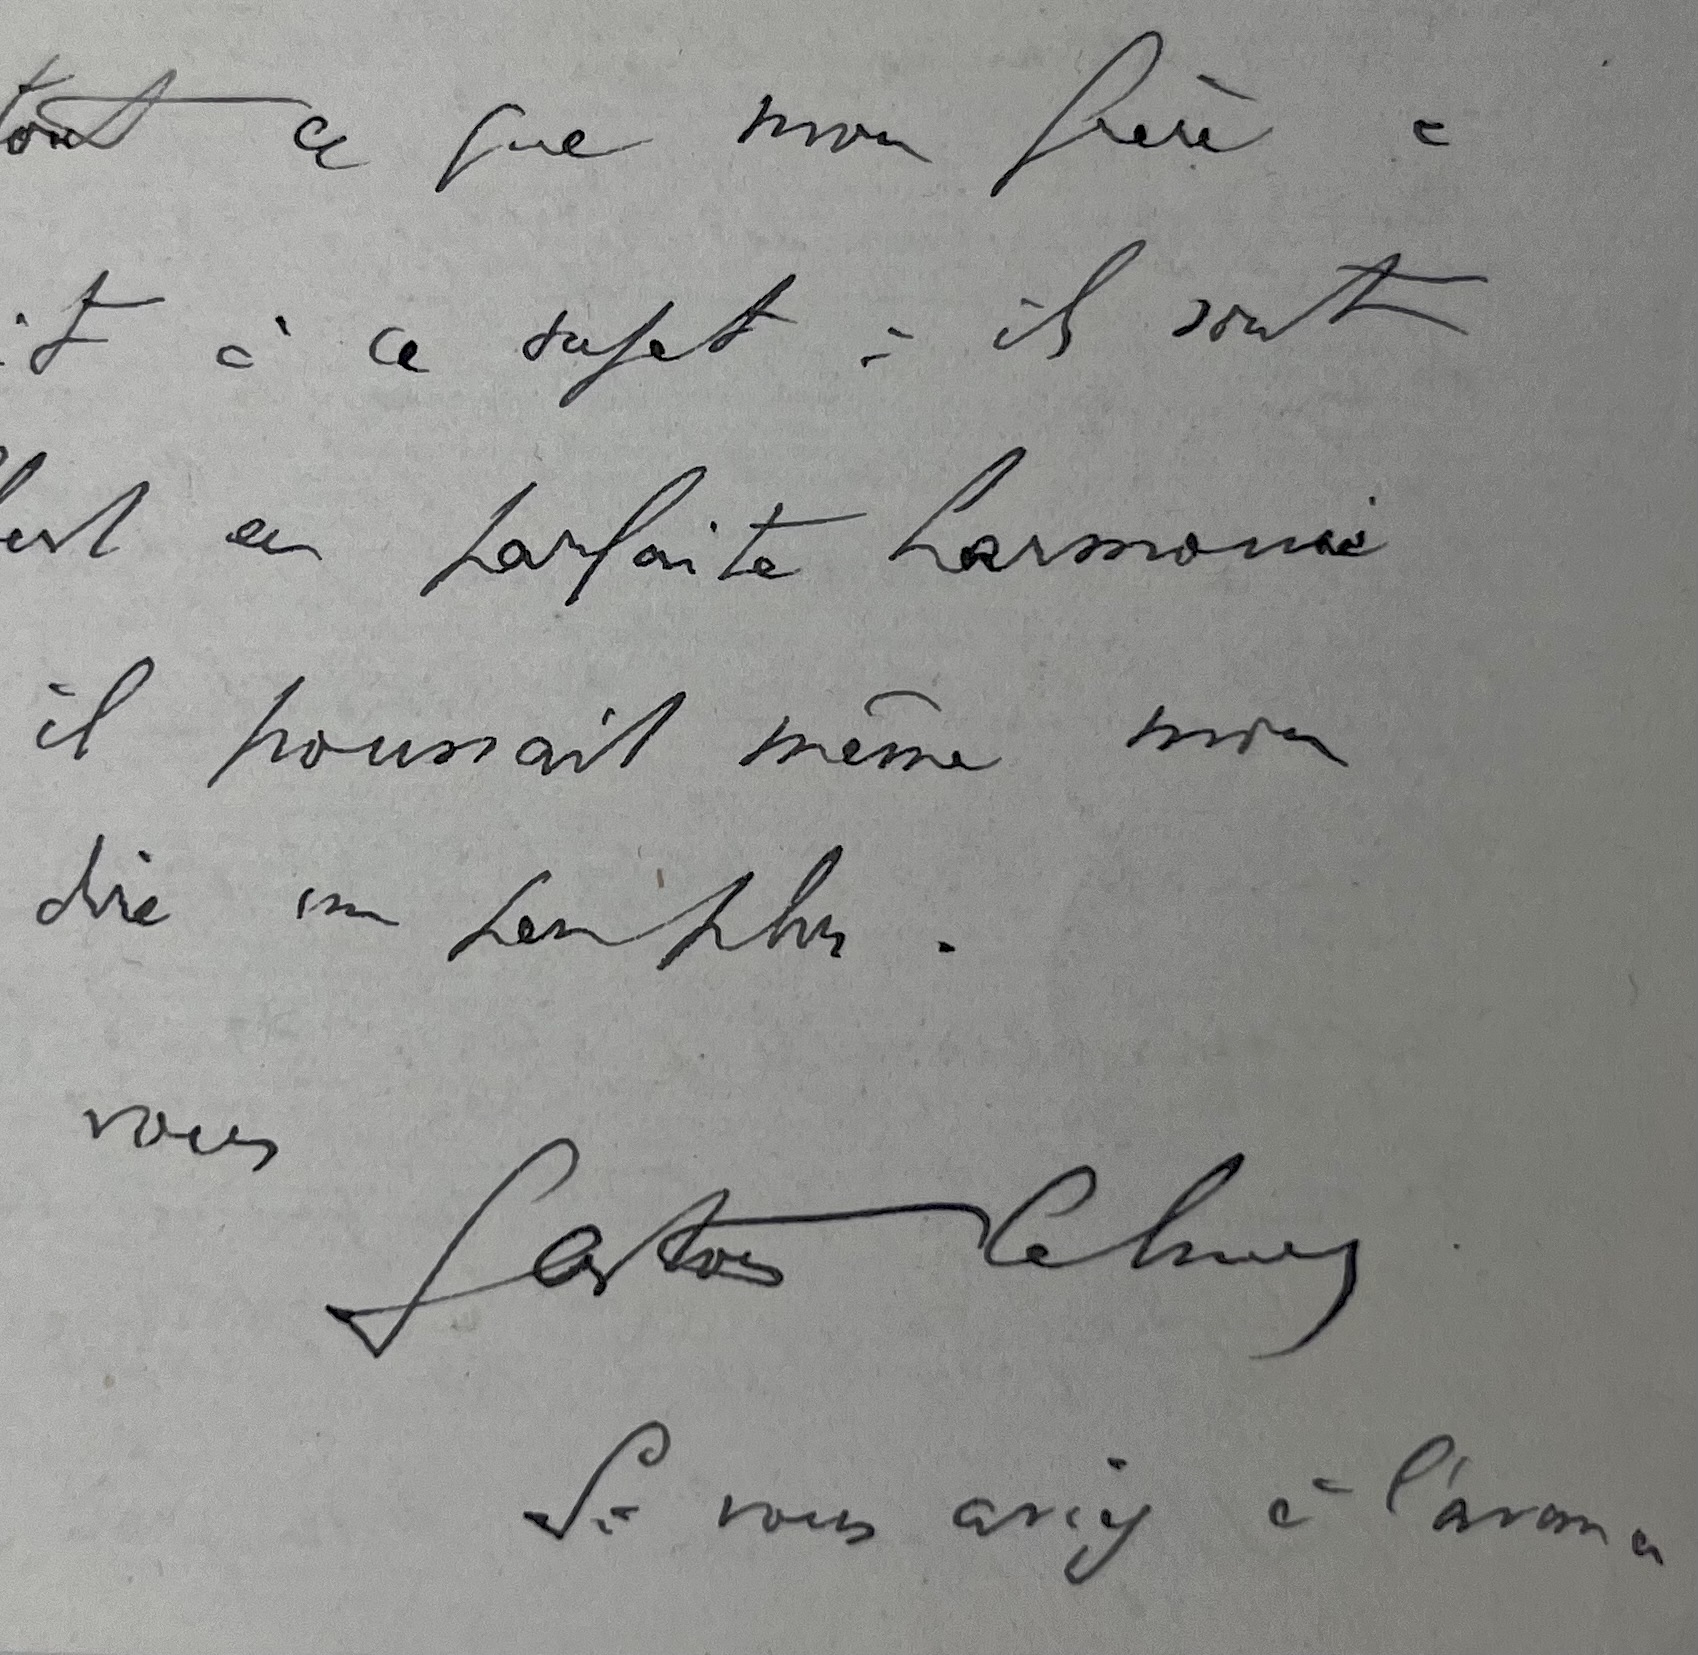 tout ce que mon frère a
it à ce sujet : ils sont
en parfaite harmonie
il poussait même mon
dire un peu plus.
vous
Gaston Calmes
Si vous aviez à l'avenir